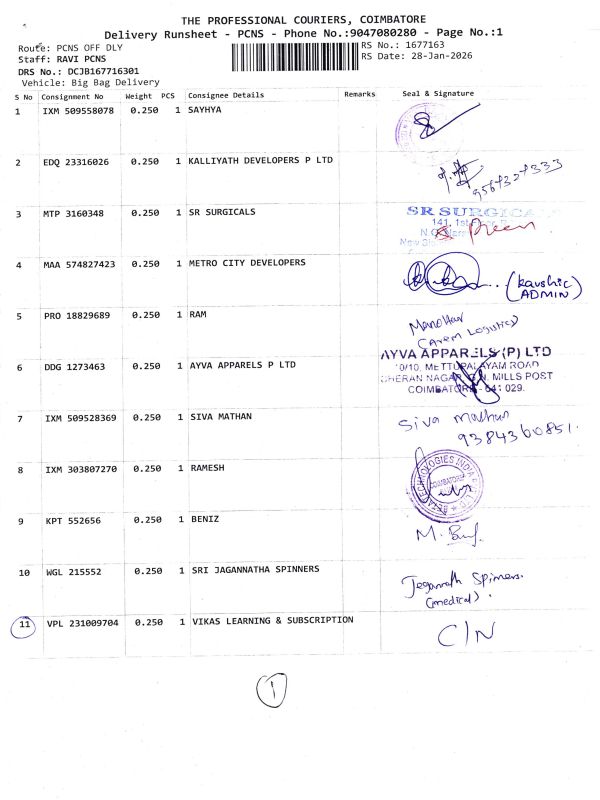 THE PROFESSIONAL COURIERS, COIMBATORE
Delivery Runsheet - PCNS - Phone No.:9047080280 - Page No.:1
Route: PCNS OFF DLY RS No.: 1677163
Staff: RAVI PCNS RS Date: 28-Jan-2026
DRS No.: DCJB167716301
Vehicle: Big Bag Delivery
S No Consignment No Weight PCS Consignee Details Remarks Seal & Signature
1 IXM 509558078 0.250 1 SAYHYA
2 EDQ 23316026 0.250 1 KALLIYATH DEVELOPERS P LTD
3 MTP 3160348 0.250 1 SR SURGICALS SR SURGICAL
141, 1st
4 MAA 574827423 0.250 1 METRO CITY DEVELOPERS (kaushic
ADMIN)
5 PRO 18829689 0.250 1 RAM Manohar
(Arem Logistics)
6 DDG 1273463 0.250 1 AYVA APPARELS P LTD AYVA APPARELS (P) LTD
10/10, METTUPALAYAM ROAD
CHERAN NAGAR, G.N. MILLS POST
COIMBATORE - 641 029.
7 IXM 509528369 0.250 1 SIVA MATHAN Siva Mathan
9384360851.
8 IXM 303807270 0.250 1 RAMESH TECHNOLOGIES INDIA
COIMBATORE
9 KPT 552656 0.250 1 BENIZ
10 WGL 215552 0.250 1 SRI JAGANNATHA SPINNERS Jegannath Spinners.
(medical).
11 VPL 231009704 0.250 1 VIKAS LEARNING & SUBSCRIPTION C/N
1